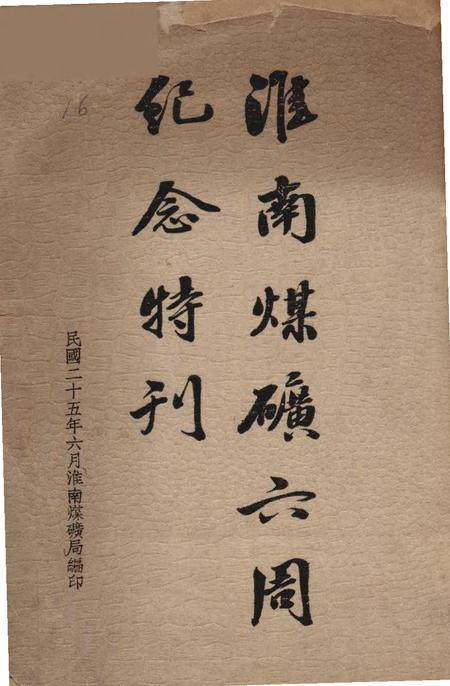 淮南煤礦六周
紀念特刊
民國二十五年六月淮南煤礦局編印
16